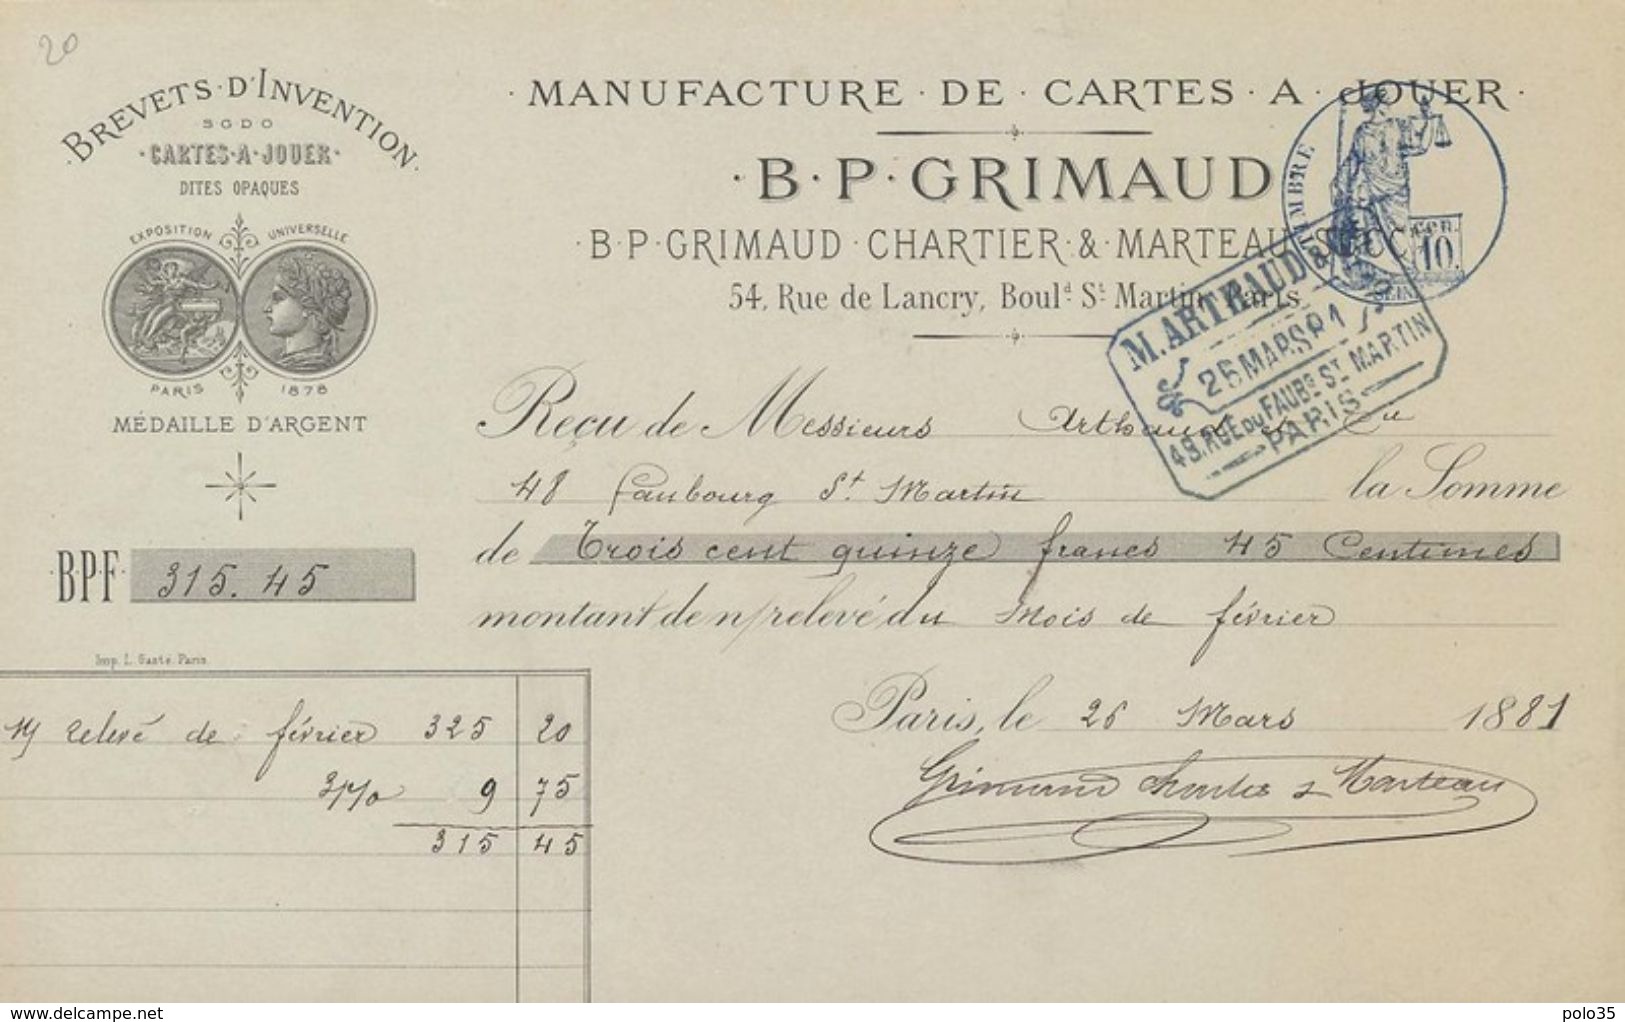 20
BREVETS·D'INVENTION
SGDG
·CARTES·A·JOUER·
DITES OPAQUES
EXPOSITION UNIVERSELLE
PARIS 1878
MÉDAILLE D'ARGENT
·B·P·F· 315.45
Imp. L. Gasté. Paris.
·MANUFACTURE·DE·CARTES·A·JOUER·
·B·P·GRIMAUD
·B·P·GRIMAUD·CHARTIER·&·MARTEAU·SUCC
54, Rue de Lancry, Boulᵈ Sᵗ Martin, Paris
TIMBRE
COPR.
10.
SEINE
M. ARTHAUD
26 MARS 81
49, RUE DU FAUBG ST MARTIN
PARIS
Reçu de Messieurs Arthaud
48 faubourg St. Martin la Somme
de Trois cent quinze francs 45 Centimes
montant de n/relevé du Mois de février
Paris, le 26 Mars 1881
Grimaud Chartier & Marteau
N/ relevé de février 325 20
3 p% 9 75
315 45
delcampe.net
polo35